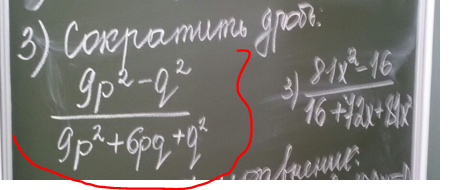 3) Сократить дробь:
9p²-q²
9p²+6pq+q²
3) 81x²-16
16+72x+81x²